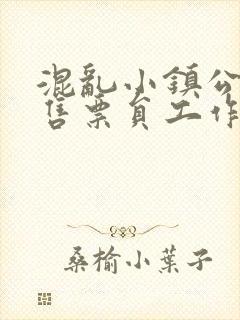 混亂小鎮公
售票員工作
桑榆小葉子